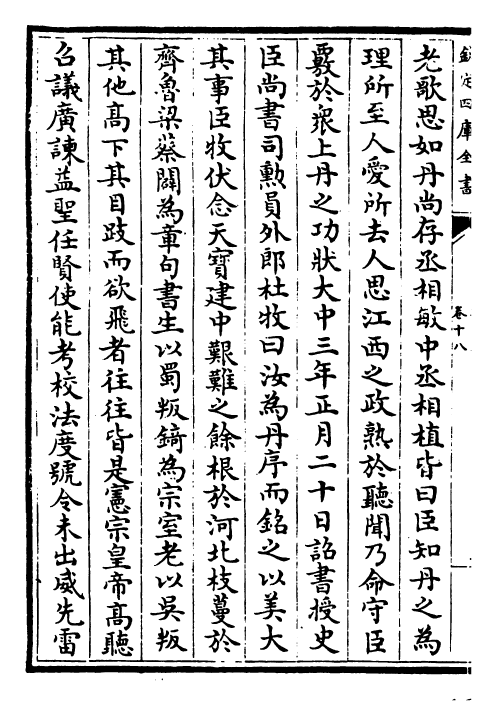 欽定四庫全書
卷十八
老歌思如丹尚存丞相敏中丞相植皆曰臣知丹之為
理所至人愛所去人思江西之政熟於聽聞乃命守臣
覈於衆上丹之功狀大中三年正月二十日詔書授史
臣尚書司勳員外郎杜牧曰汝為丹序而銘之以美大
其事臣牧伏念天寶建中艱難之餘根於河北枝蔓於
齊魯梁蔡闢為章句書生以蜀叛錡為宗室老以吳叛
其他髙下其目跂而欲飛者往往皆是憲宗皇帝髙聽
召議廣諫益聖任賢使能考校法度號令未出威先雷